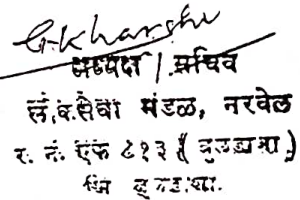 G.Kharshe
अध्यक्ष / सचिव
लं.व.सेवा मंडळ, नरवेल
र. नं. एफ ८१३ ( बुलडाणा )
जि बुलडाणा.